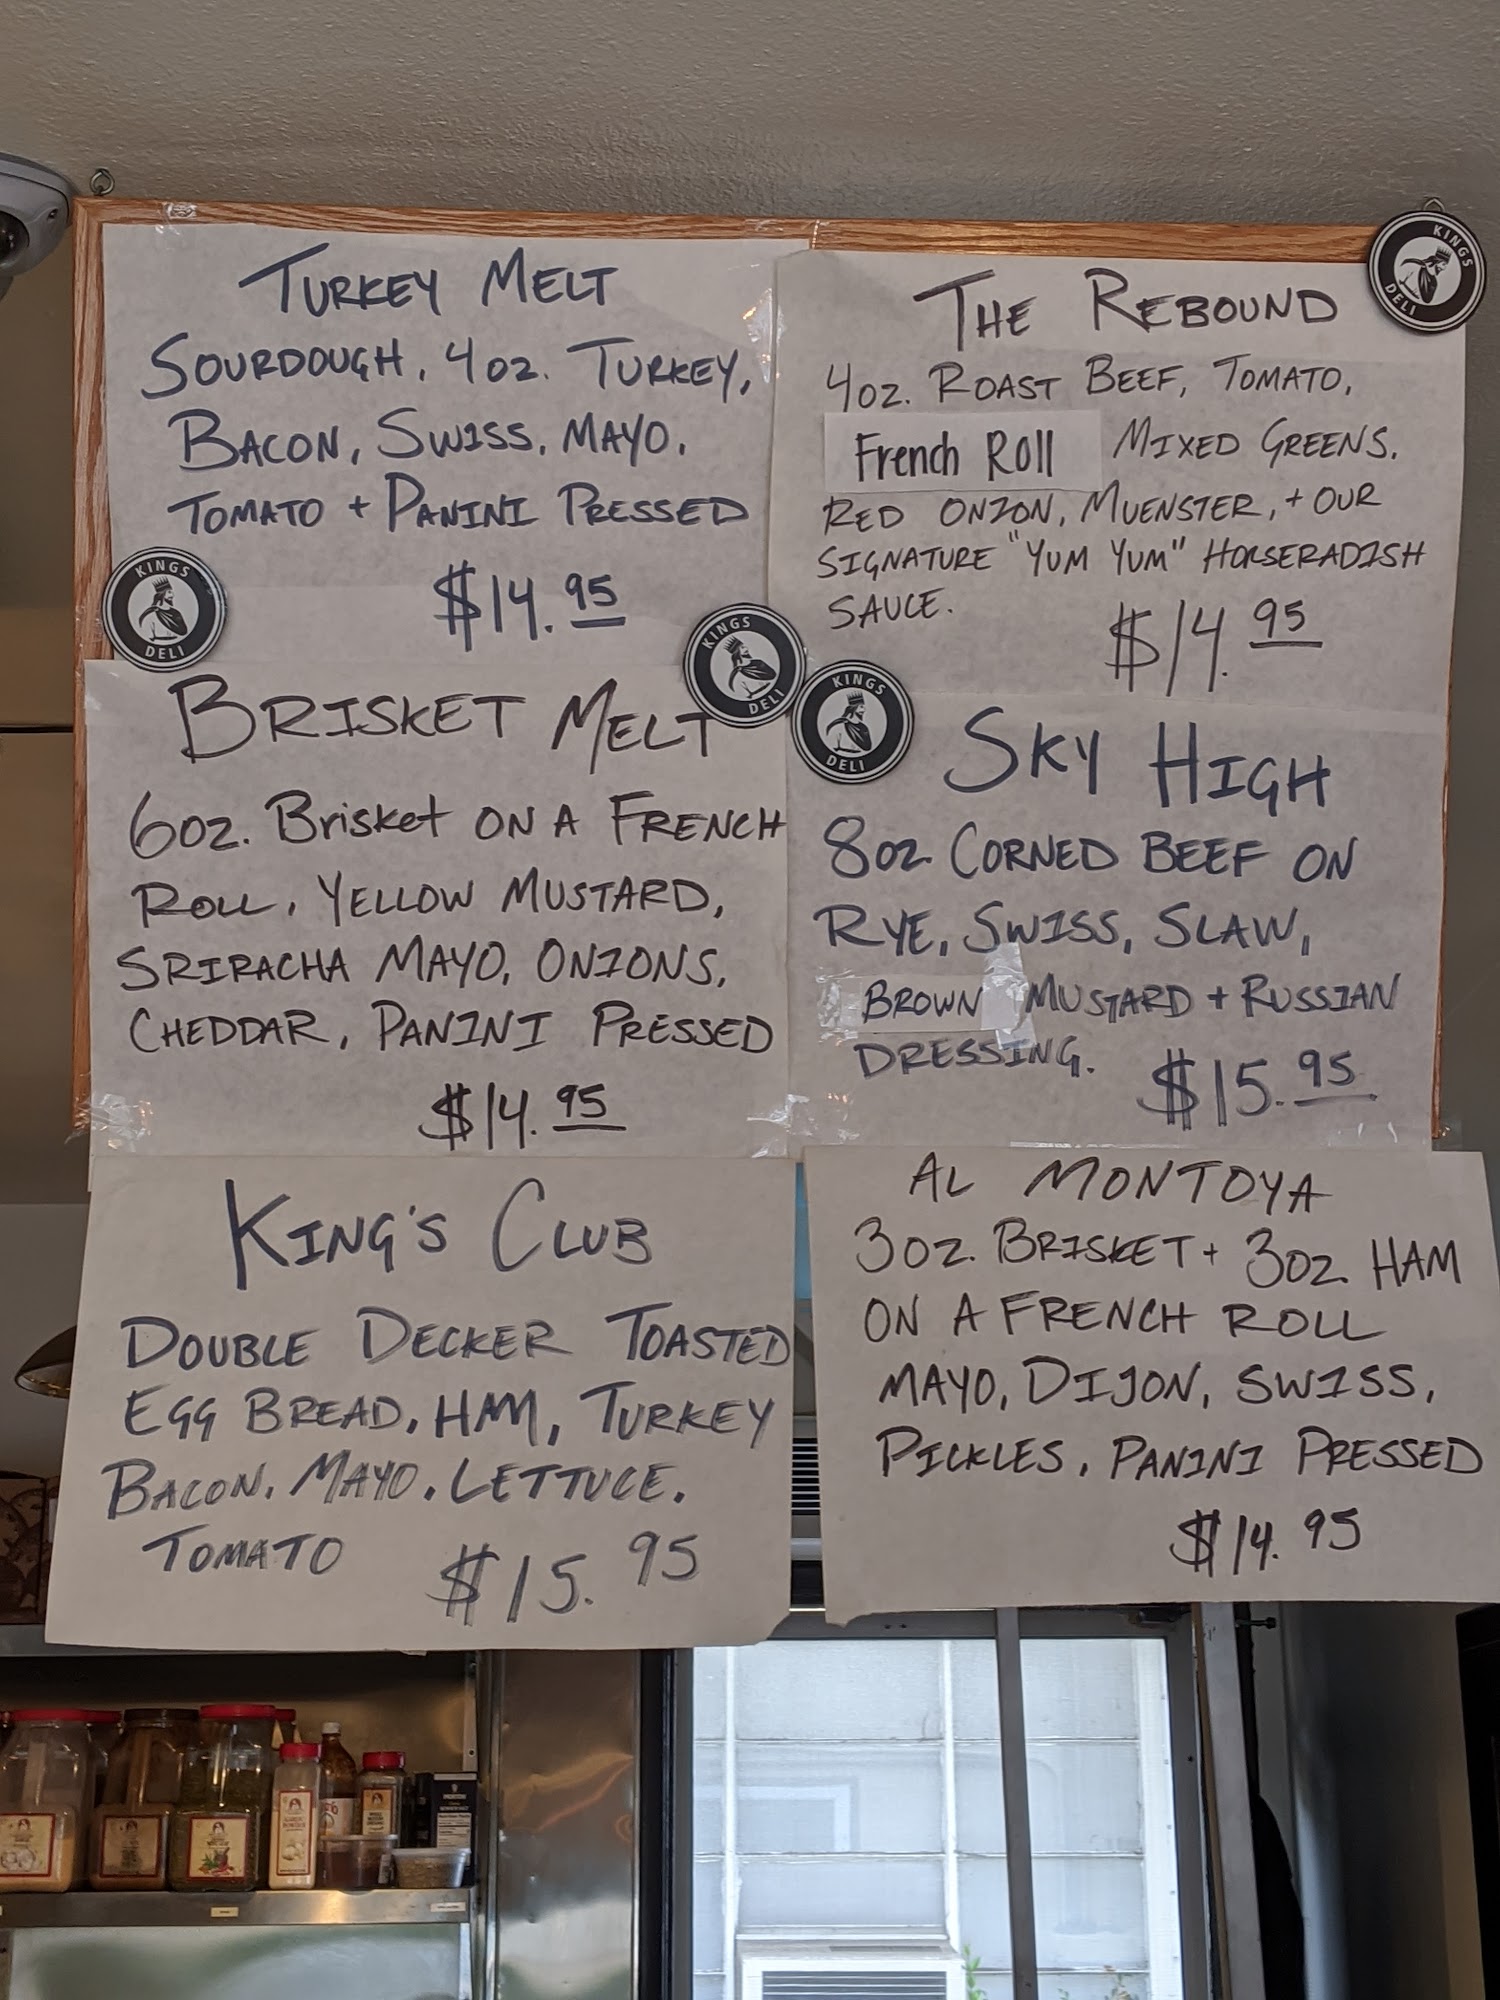 TURKEY MELT
SOURDOUGH, 4oz. TURKEY,
BACON, SWISS, MAYO,
TOMATO + PANINI PRESSED
$14.95
THE REBOUND
4oz. ROAST BEEF, TOMATO,
French Roll MIXED GREENS,
RED ONION, MUENSTER, + OUR
SIGNATURE "YUM YUM" HORSERADISH
SAUCE.
$14.95
KINGS
DELI
KINGS
DELI
KINGS
DELI
KINGS
DELI
BRISKET MELT
6oz. Brisket ON A FRENCH
ROLL, YELLOW MUSTARD,
SRIRACHA MAYO, ONIONS,
CHEDDAR, PANINI PRESSED
$14.95
SKY HIGH
8oz CORNED BEEF ON
RYE, SWISS, SLAW,
BROWN MUSTARD + RUSSIAN
DRESSING.
$15.95
KING'S CLUB
DOUBLE DECKER TOASTED
EGG BREAD, HAM, TURKEY
BACON, MAYO, LETTUCE,
TOMATO
$15.95
AL MONTOYA
3oz. BRISKET + 3oz. HAM
ON A FRENCH ROLL
MAYO, DIJON, SWISS,
PICKLES, PANINI PRESSED
$14.95